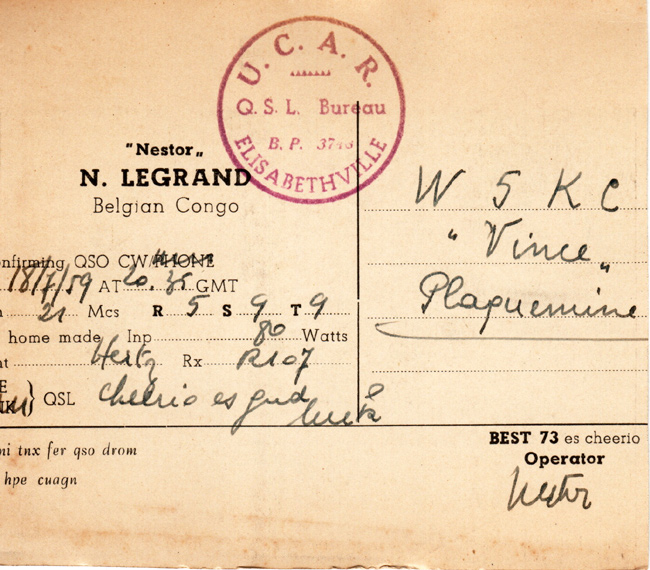 U. C. A. R.
Q. S. L. Bureau
B. P. 3748
ELISABETHVILLE
"Nestor„
N. LEGRAND
Belgian Congo
W 5 K C
"Vince"
Plaquemine
nfirming QSO CW/PHONE
18/7/59 AT 20.35 GMT
21 Mcs R 5 S 9 T 9
home made Inp 80 Watts
Hertz Rx R107
QSL cheerio es gud luck
ni tnx fer qso drom
hpe cuagn
BEST 73 es cheerio
Operator
Nestor